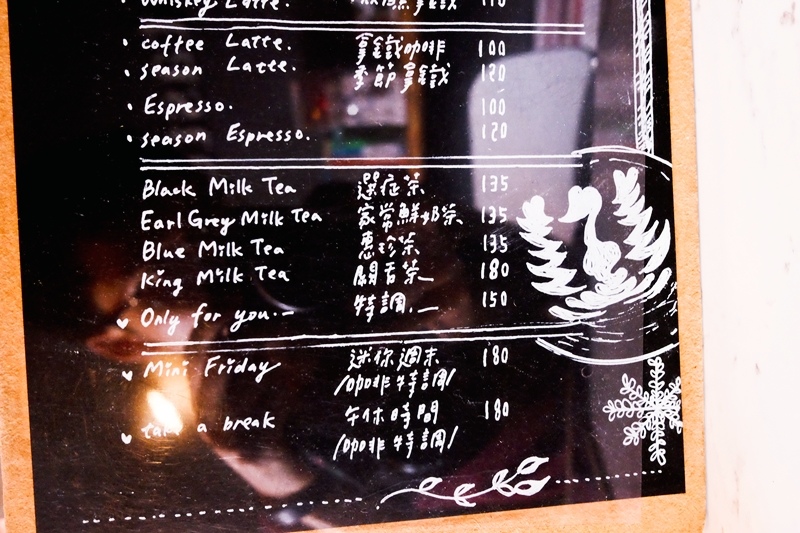 Whiskey Latte.
• coffee Latte. 拿鐵咖啡 100
• season Latte. 季節拿鐵 120
• Espresso. 100
• season Espresso. 120
Black Milk Tea 選症茶 135
Earl Grey Milk Tea 家常鮮奶茶 135
Blue Milk Tea 惠珍茶 135
King Milk Tea 闕香茶 180
♥ Only for you.- 特調. 150
♥ Mini Friday 迷你週末 180
/咖啡特調/
♥ take a break 午休時間 180
/咖啡特調/